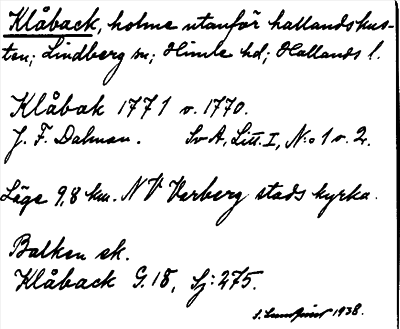 Klåback, holme utanför hallandskus-
ten; Lindberg sn; Himle hd; Hallands l.
Klåbak 1771 v. 1770.
J. F. Dalman. Sv A, Litt. I, N:o 1 v. 2.
Läge 9,8 km. NV Varberg stads kyrka.
Balken sk.
Klåback G. 18, Sj: 275.
1938.